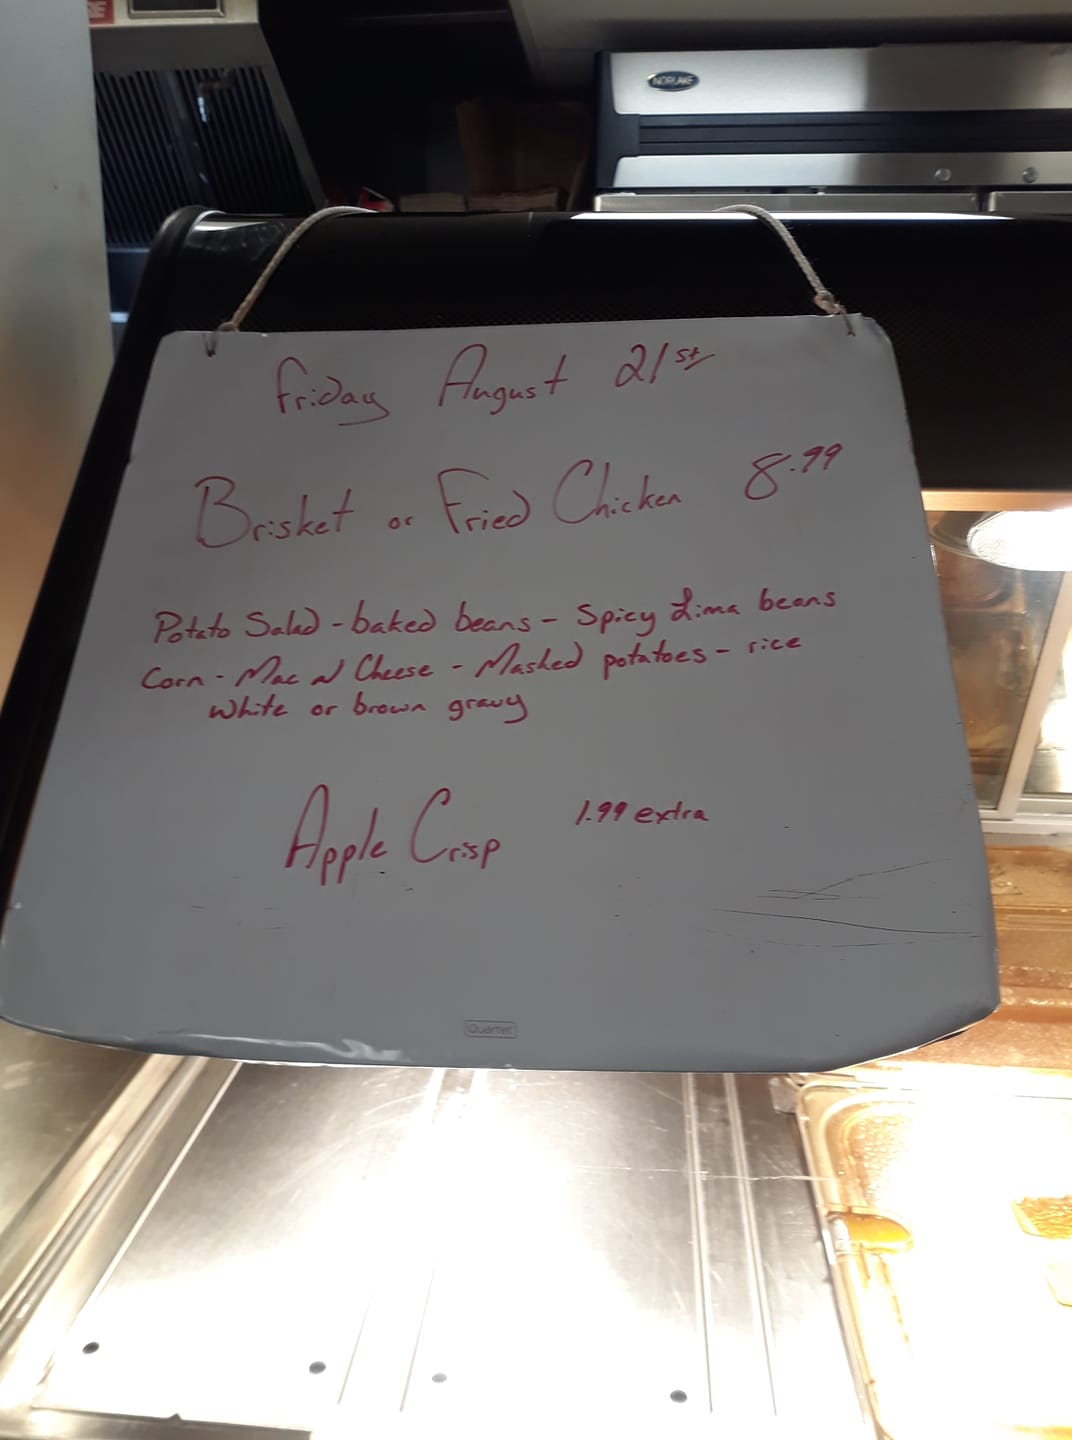 NORLAKE
Friday August 21st
Brisket or Fried Chicken 8.99
Potato Salad - baked beans - Spicy Lima beans
Corn - Mac N Cheese - Mashed potatoes - rice
white or brown gravy
Apple Crisp 1.99 extra
Quartet